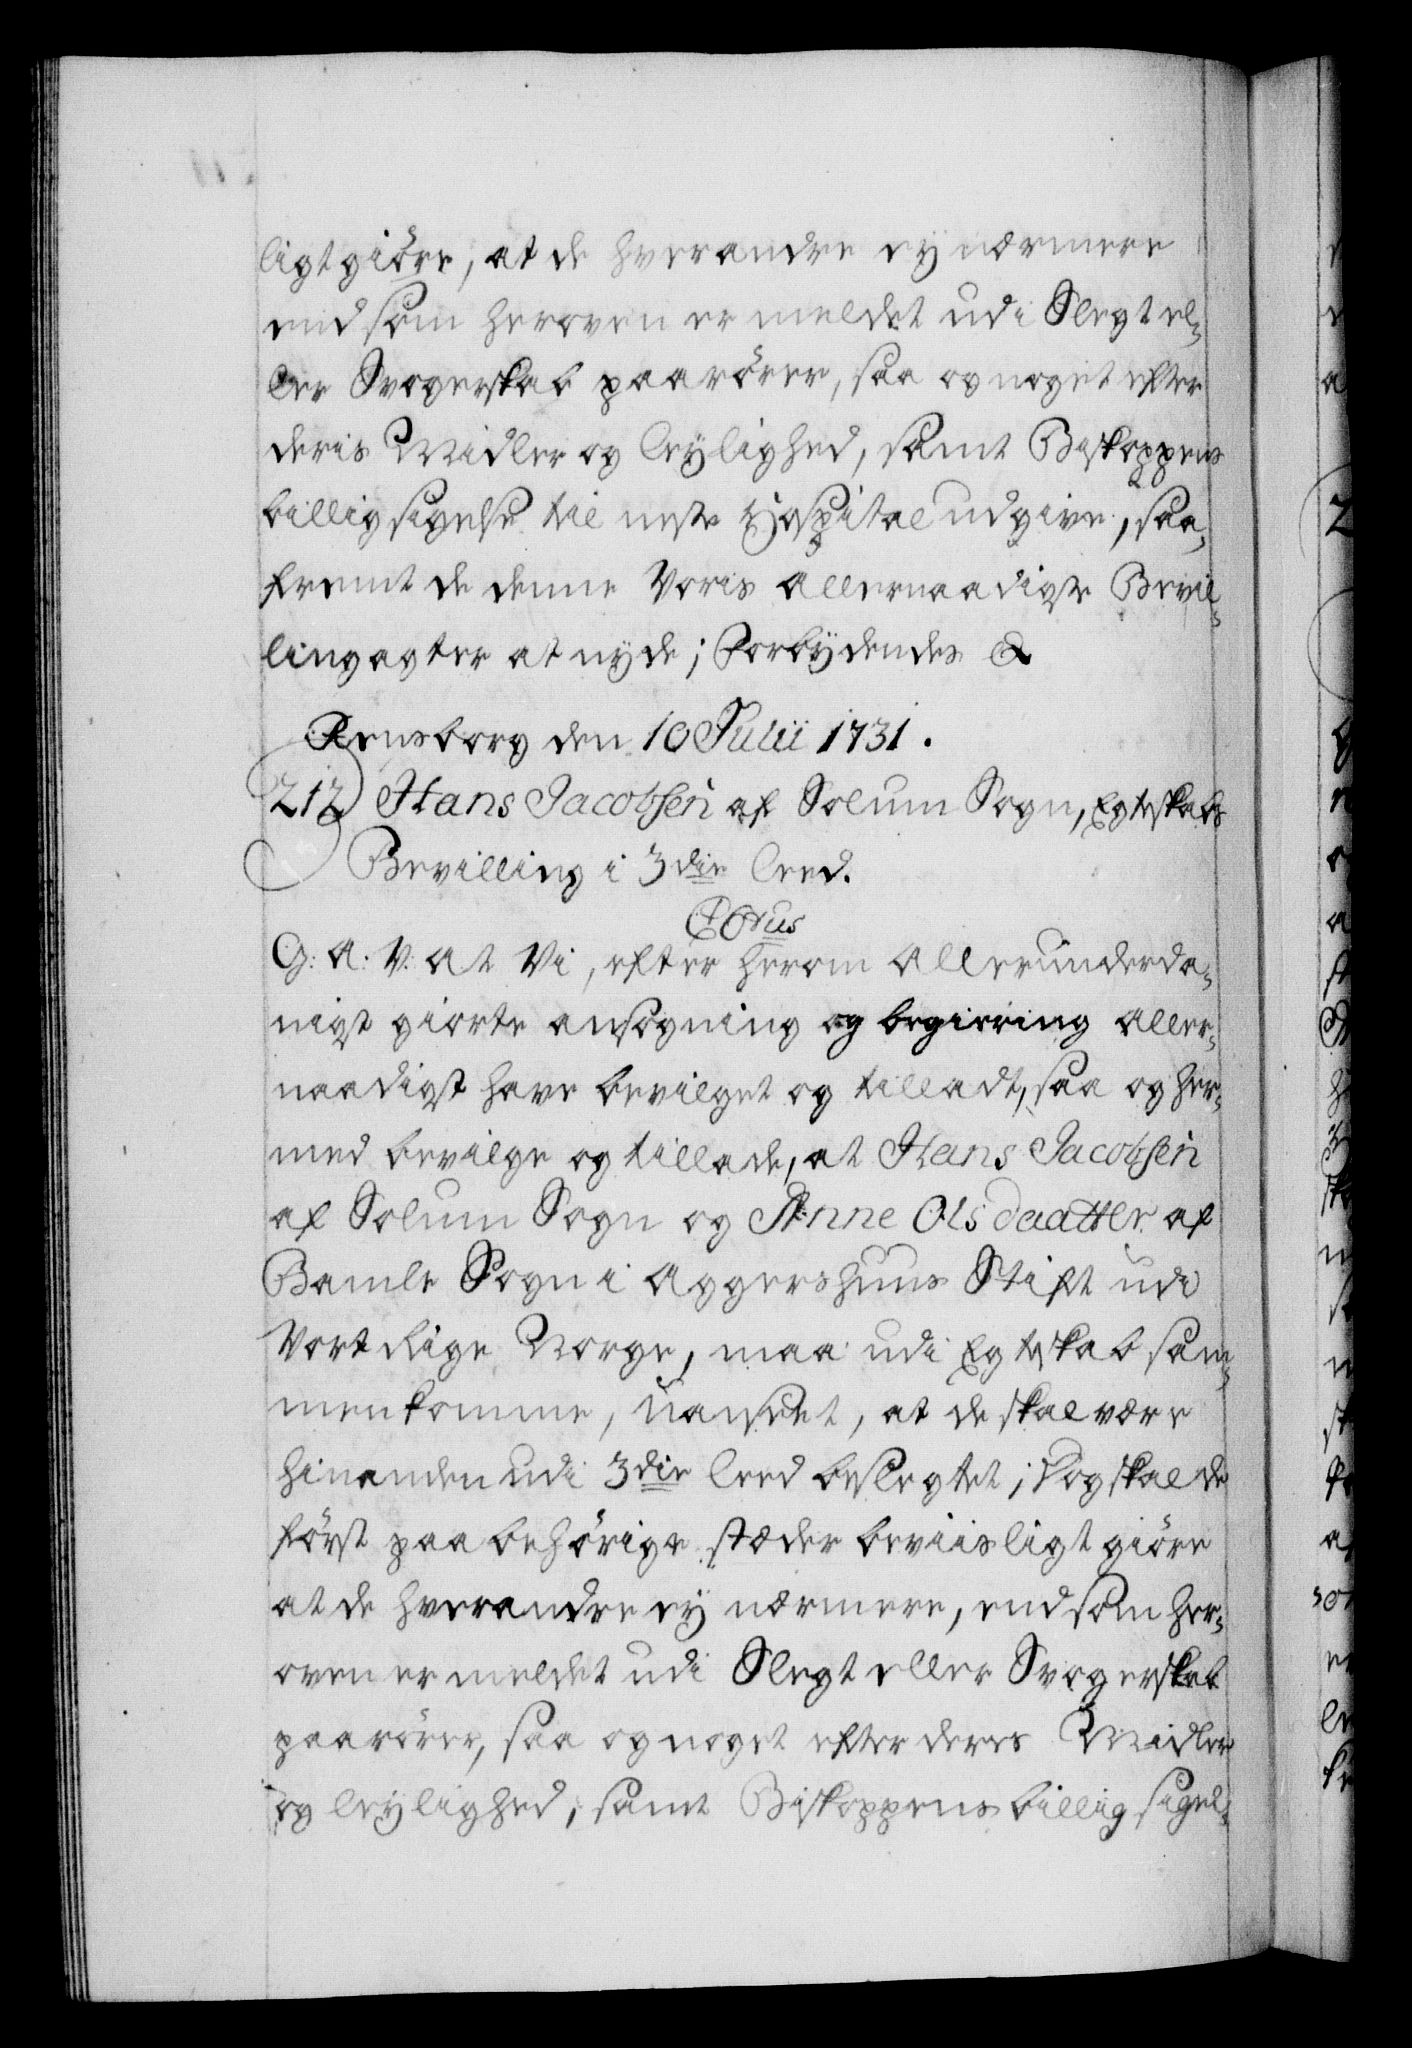 ligt giöre, at de hverandre ey nærmere
end som heroven er meldet udi Slegt el-
ler Svogerskab paarörer, saa og noget efter
deris Midler og leylighed, samt Biskoppens
billigsigelse til neste Hospital udgive, saa-
fremt de denne Voris allernaadigste Bevil-
ling agter at nyde; Forbydendes &
Rensborg den 10 Julii 1731.
212 Hans Jacobsen af Solum Sogn, Egteskabs
Bevilling i 3die Leed.
C 6tus
G: A. V: at Vi, efter herom allerunderda-
nigst giorte ansögning og begiering aller-
naadigst have bevilget og tilladt, saa og her-
med bevilge og tillade, at Hans Jacobsen
af Solum Sogn og Anne Olsdaatter af
Bamle Sogn i Aggershuus Stift udi
Vort Rige Norge, maa udi Egteskab sam-
menkomme, uanseet, at de skal være
hinanden udi 3die leed beslegtet; Dog skal de
först paa behörige stæder beviisligt giöre
at de hverandre ey nærmere, end som her-
oven er meldet udi Slegt eller Svogerskab
paarörer, saa og noget efter deres Midler
og leylighed, samt Biskoppens billig sigel-